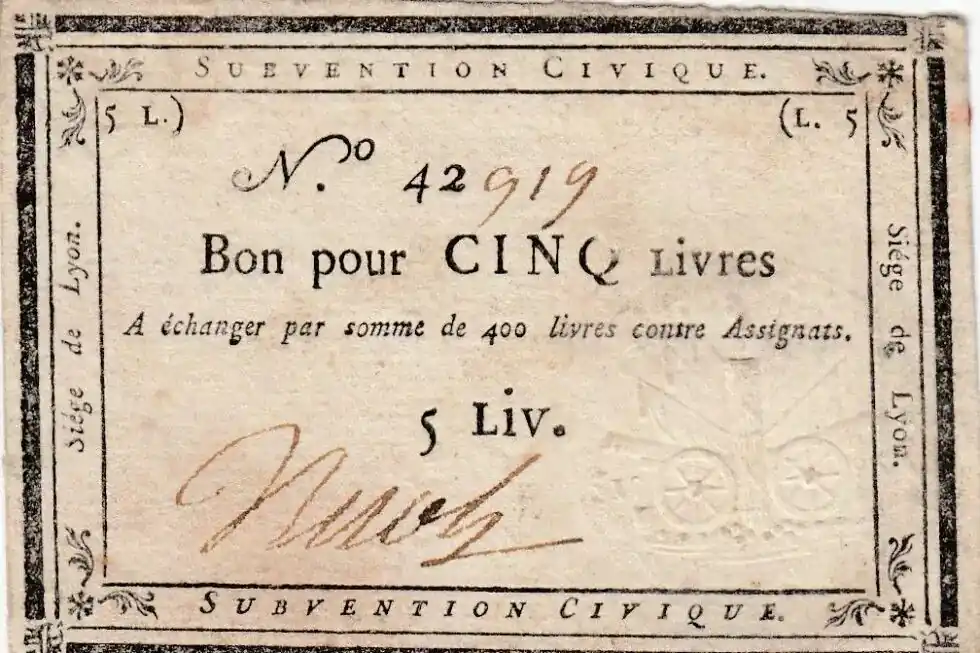 SUBVENTION CIVIQUE.
5 L.) (L. 5
N.º 42919
Bon pour CINQ Livres
A échanger par somme de 400 livres contre Assignats.
5 Liv.
SUBVENTION CIVIQUE.
Siége de Lyon.
Siége de Lyon.